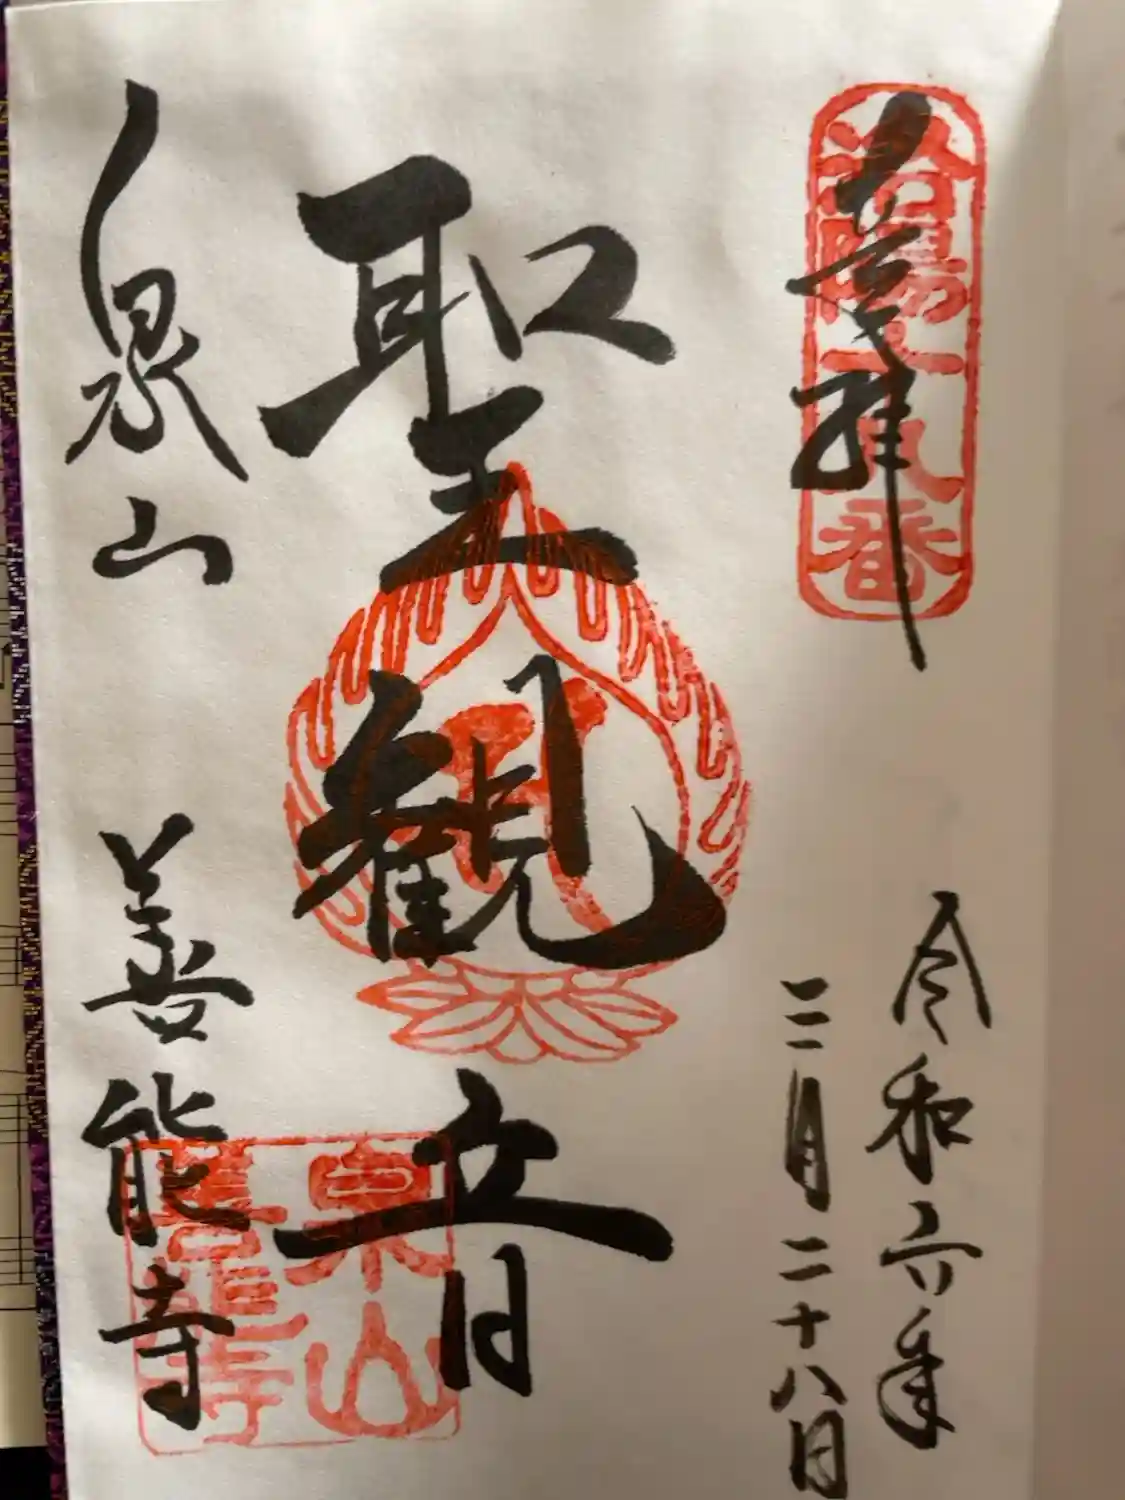 奉拝
洛陽十八番
令和六年
三月二十八日
聖観音
泉山
善能寺
泉山
善能寺